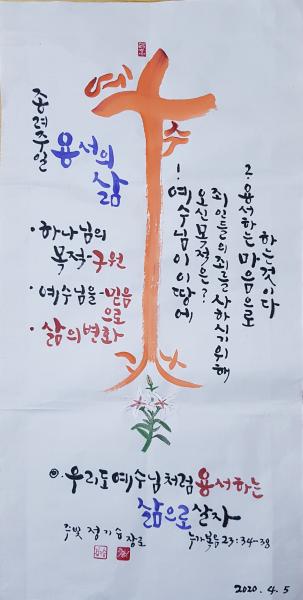 예수
종려주일
용서의
삶
· 하나님의
목적-구원
· 예수님을-믿음
으로
· 삶의변화
1. 예수님이 이 땅에
오신 목적은?
죄인들의 죄를 사하시기 위해
2. 용서하는 마음으로
하는것이다
◎. 우리도 예수님처럼 용서하는
삶으로 살자
누가복음 23:34-38
주빛 장로
2020. 4. 5